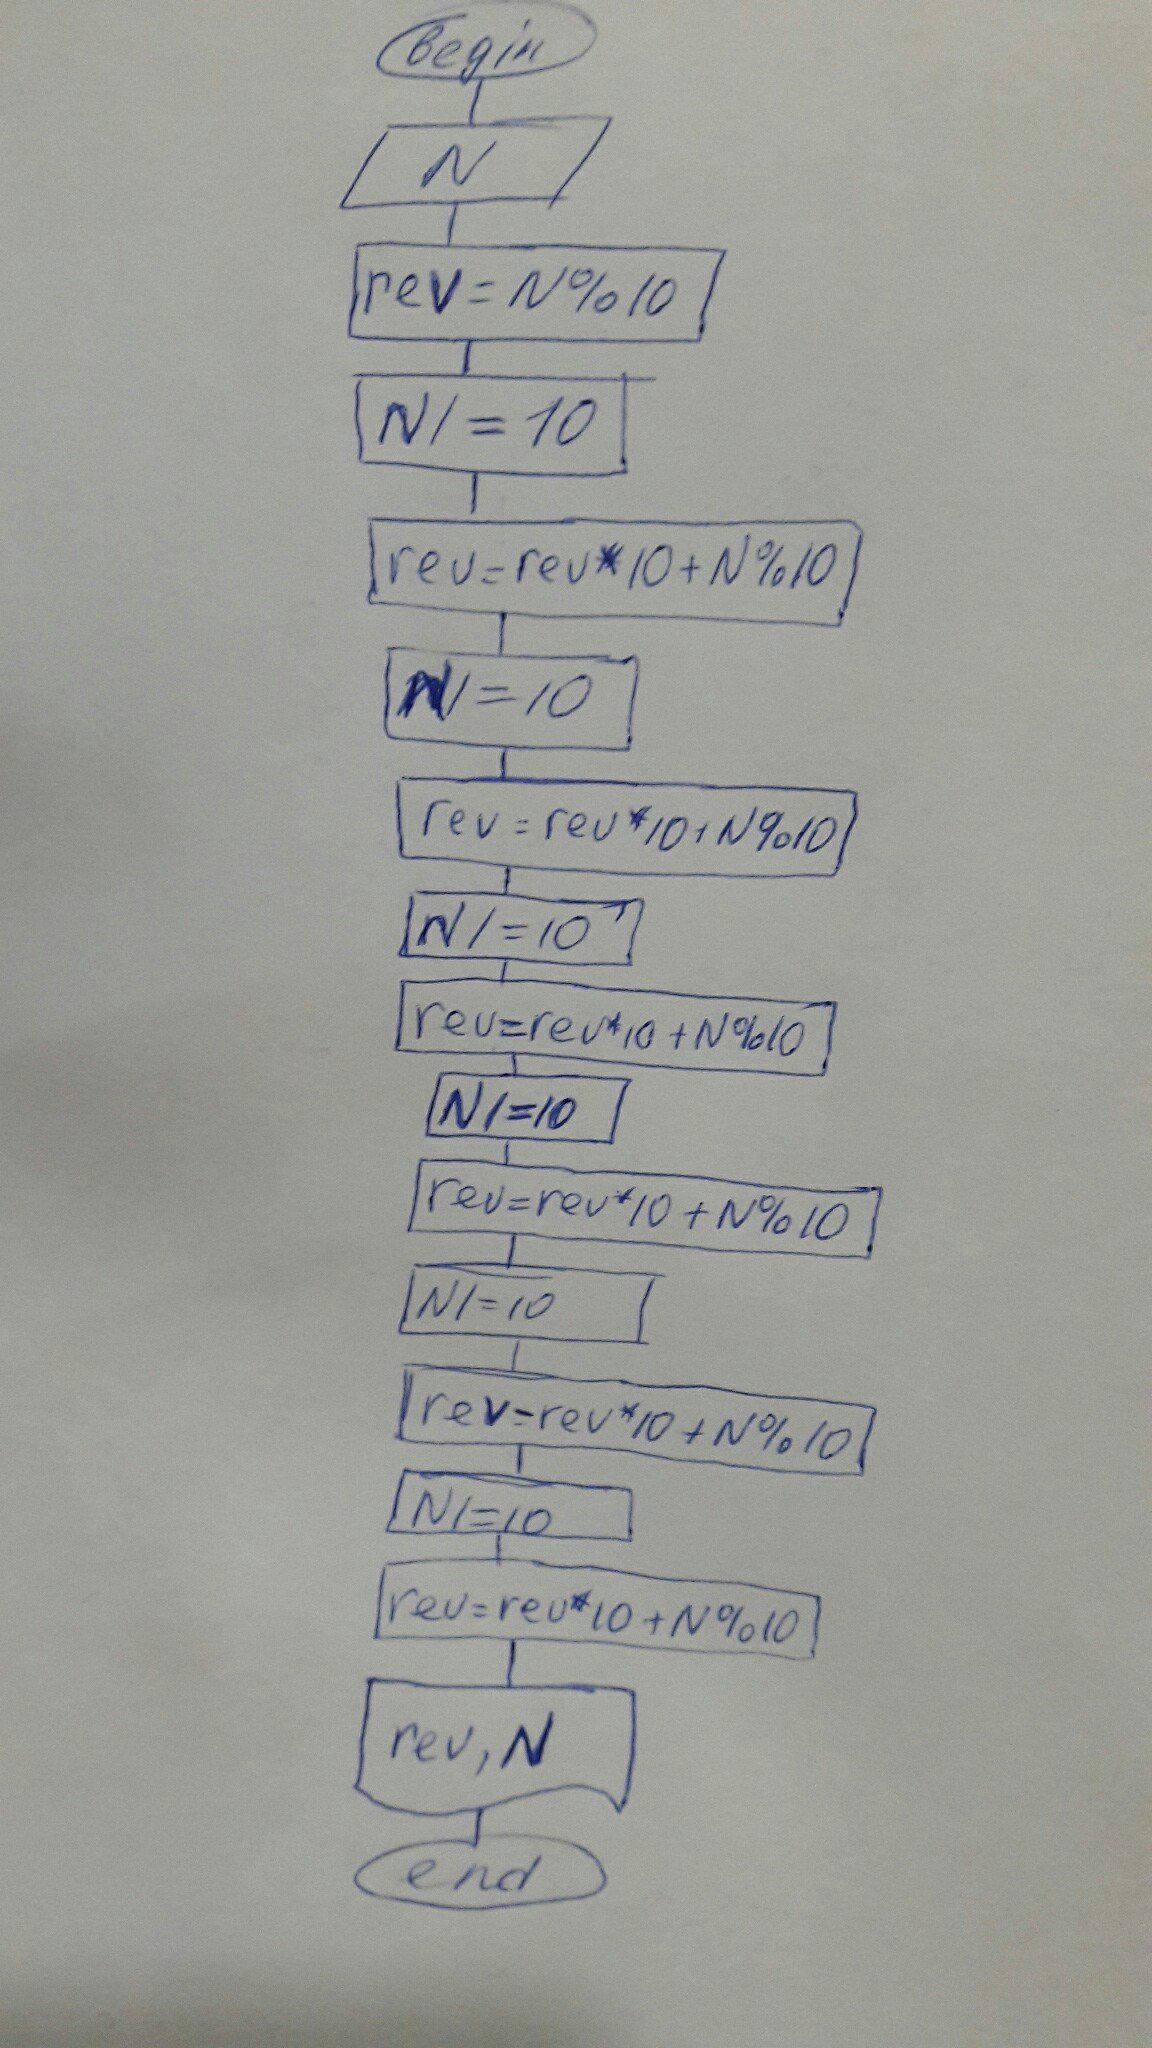 begin
N
rev=N%10
N/=10
rev=rev*10+N%10
N/=10
rev=rev*10+N%10
N/=10
rev=rev*10+N%10
N/=10
rev=rev*10+N%10
N/=10
rev=rev*10+N%10
N/=10
rev=rev*10+N%10
rev, N
end